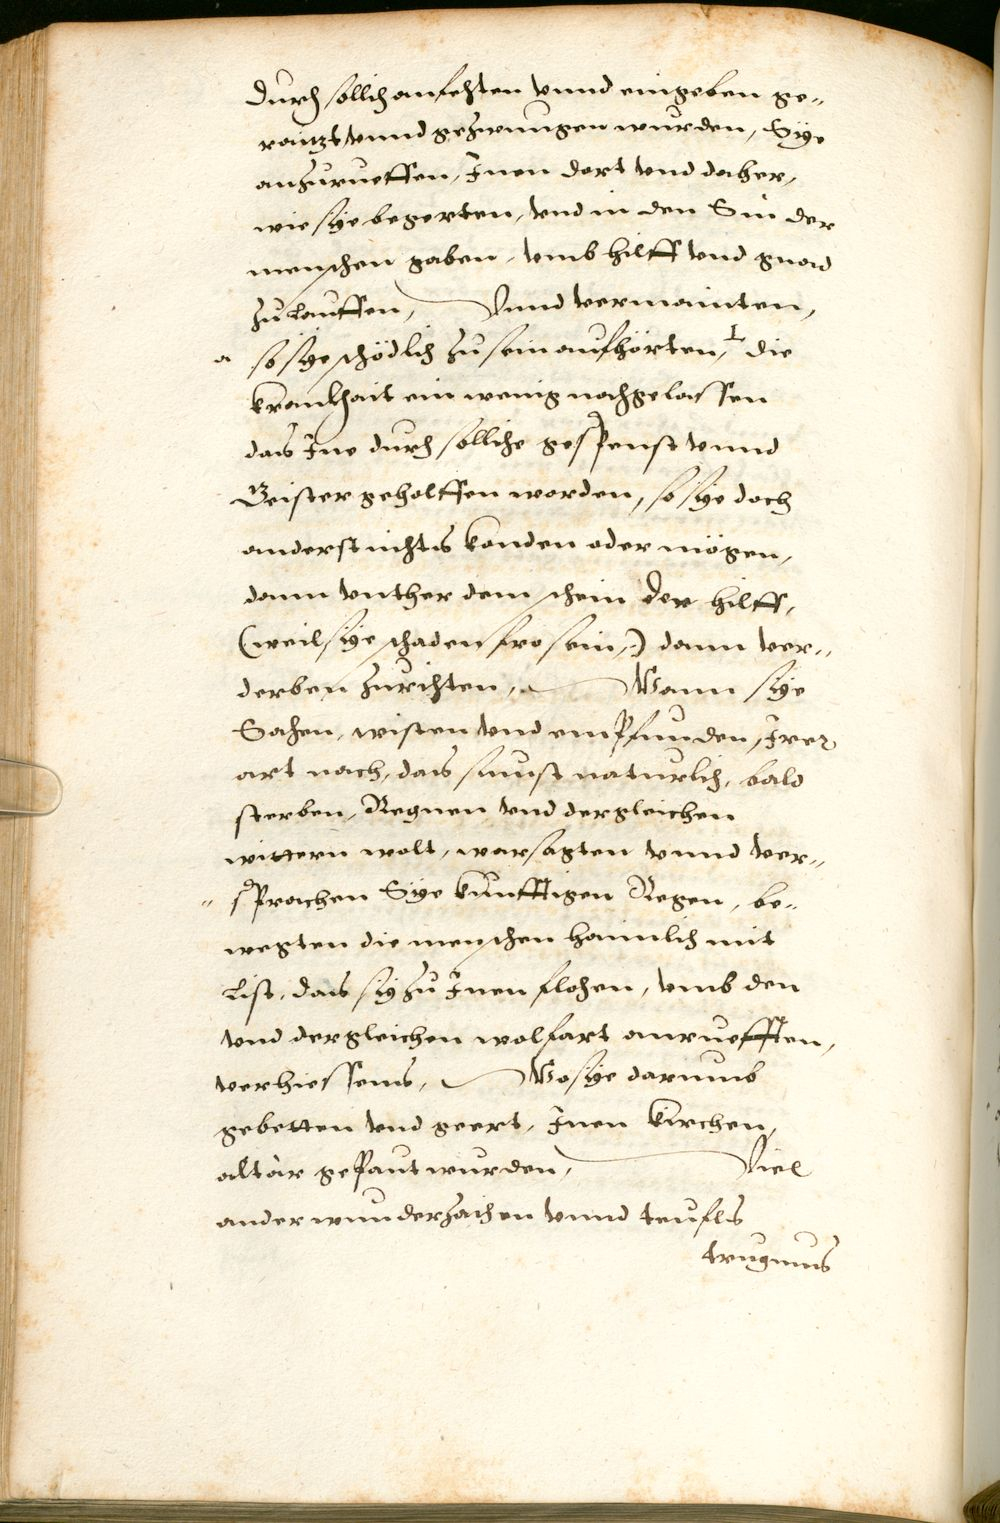 durch sollich anfechten vnnd eingeben ge-
raitzt vnnd gezwungen wurden, Sÿe
anzurueffen, Inen dort vnd daher,
wie sÿe begerten, vnd in den Sin der
menschen gaben, vmb hilff vnd gnad
zu lauffen, Vnnd vermainten,
a so sÿe schödlich zu sein aufhörten, die
kranckhait ein wenig nachgelassen
das Ine durch solliche gespenst vnnd
Geister geholffen worden, so sÿe doch
anderst nichts konden oder mögen,
dann vnther dem schein der hilff,
(weil sÿe schadenfro sein,) dann ver-
derben zurichten, Wann sÿe
Sahen, wisten vnd empfunden, Irer
art nach, das sunst naturlich, bald
sterben, Regnen vnd dergleichen
wittern wolt, warsagten vnnd ver-
sprachen Sÿe künfftigen Regen, be-
wegten die menschen haimlich mit
List, das sÿ zu Inen flohen, vmb den
vnd dergleichen wolfart anruefften,
verhiessens, Wo sÿe darumb
gebetten vnd geert, Inen kirchen,
altär gepaut wurden, Viel
ander wunderzaichen vnnd teufls
trugnus